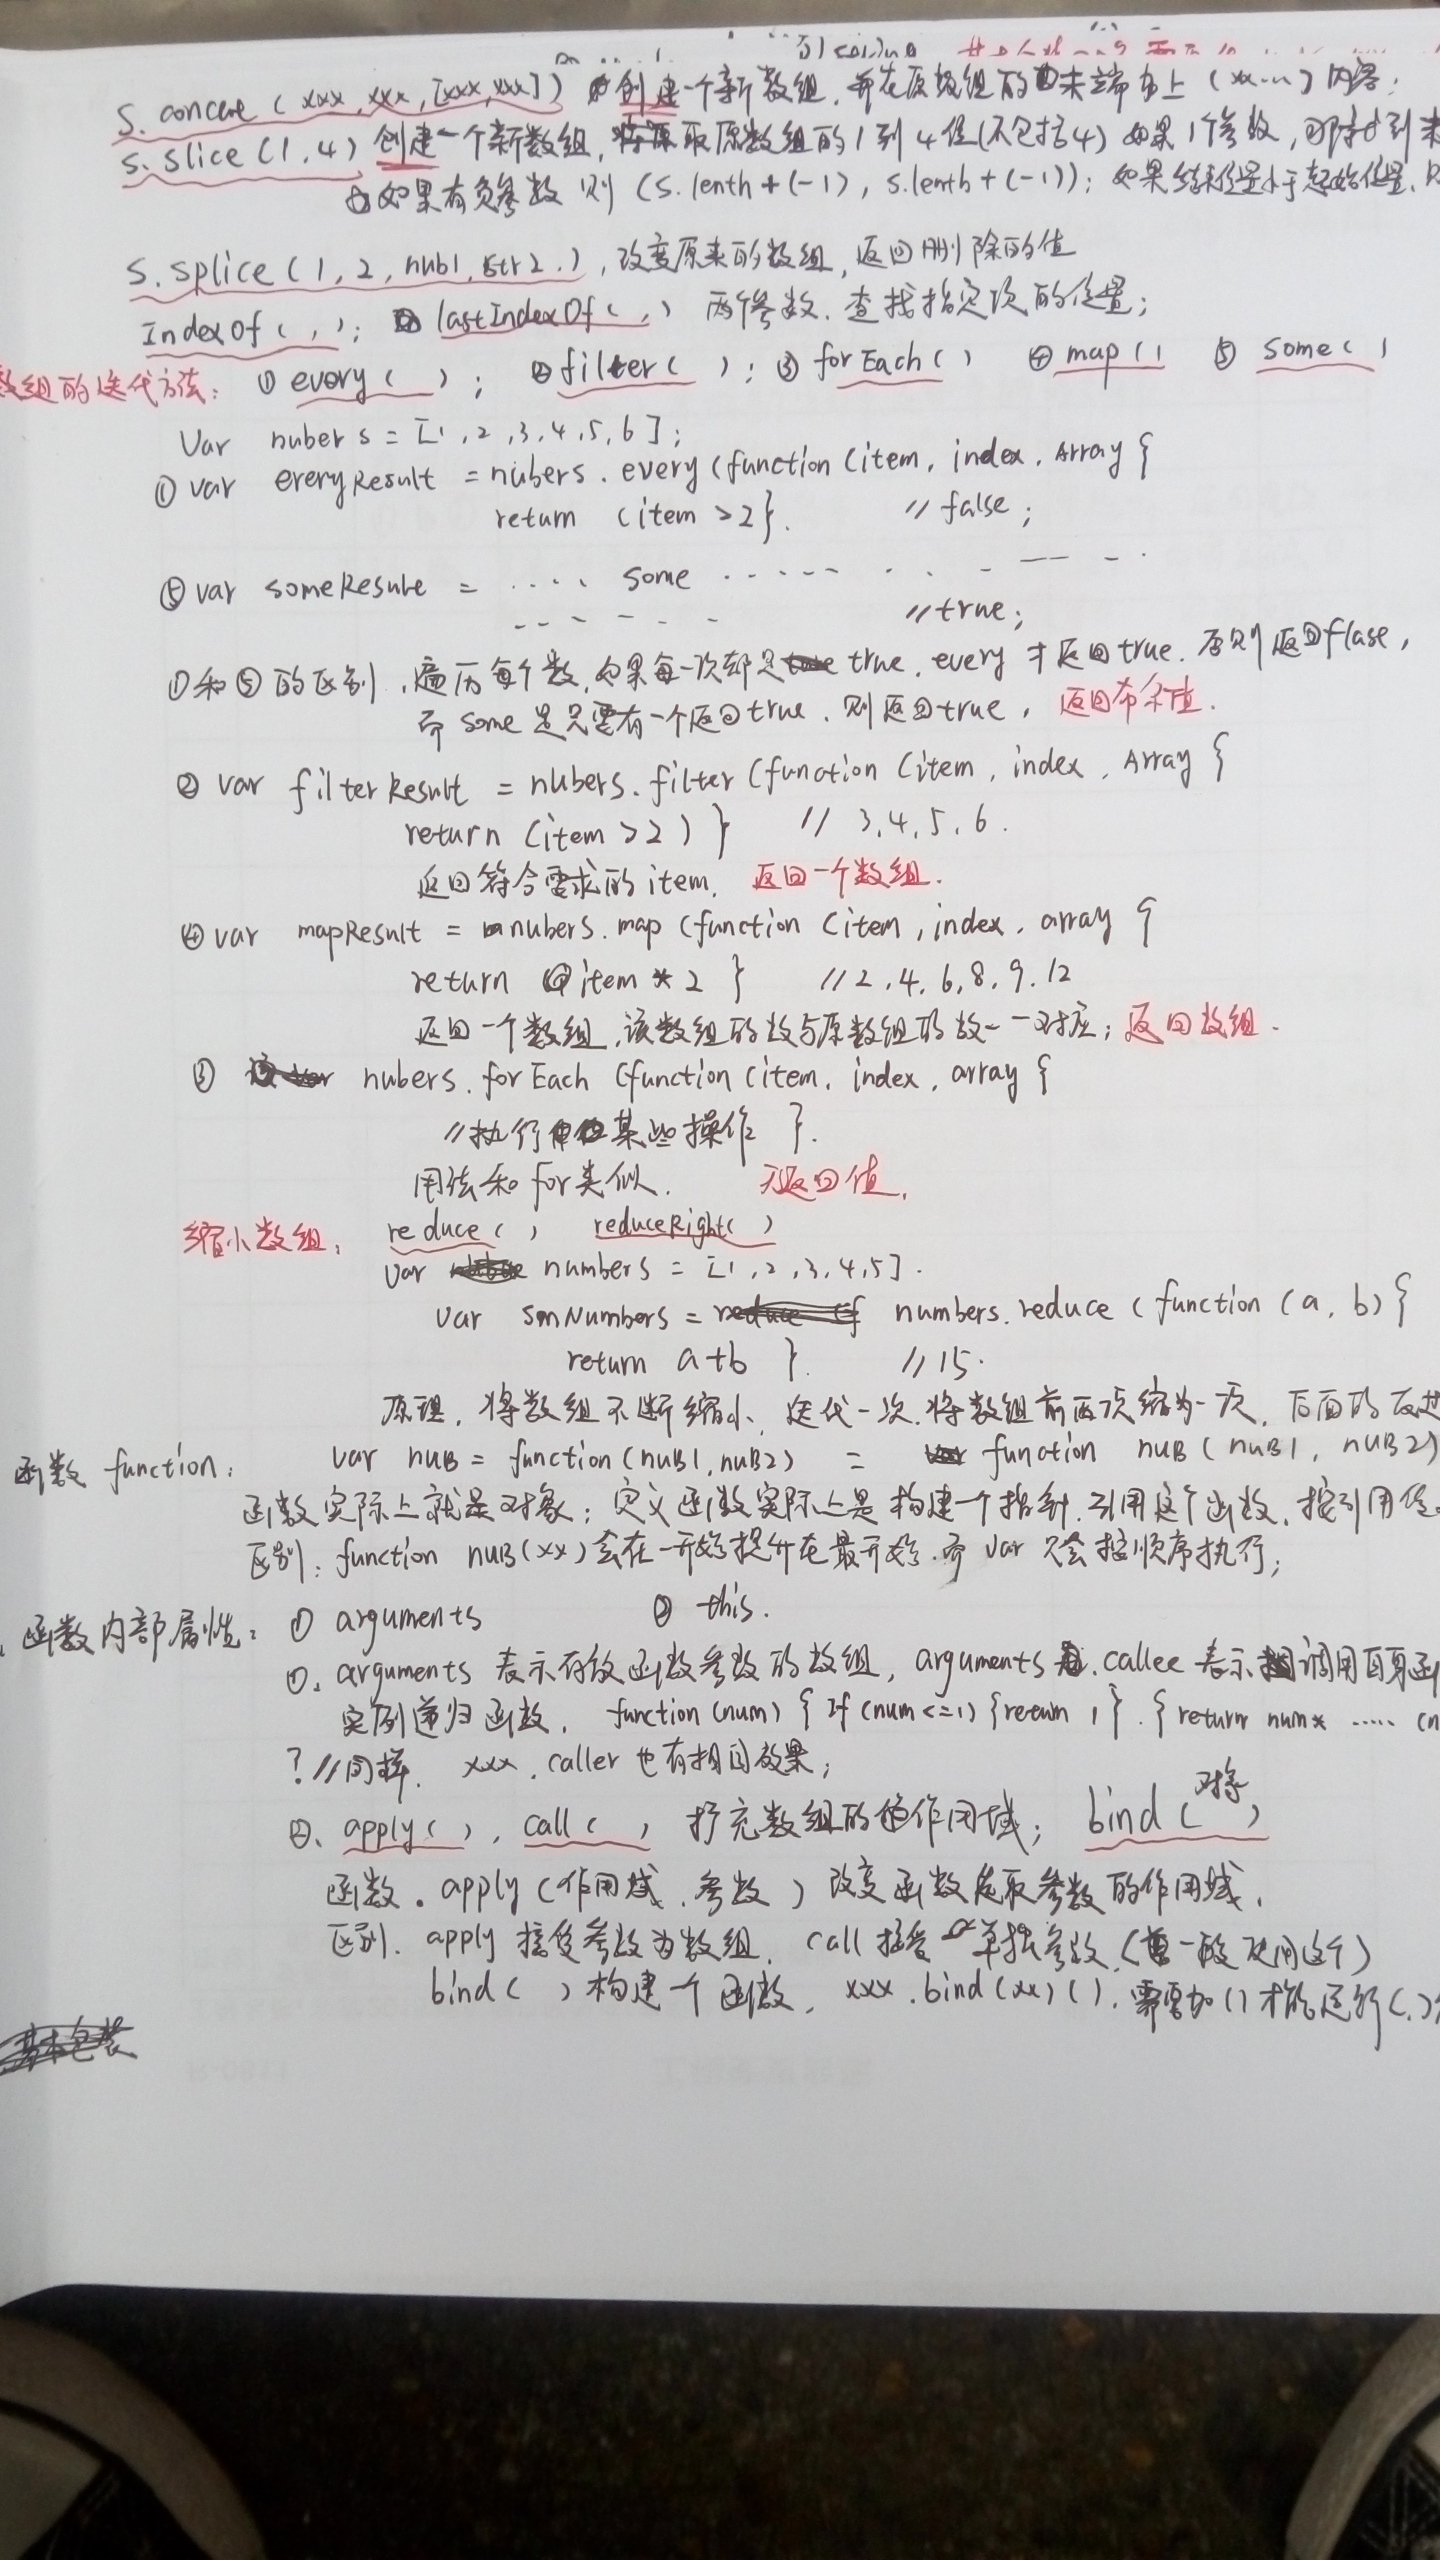 S. concate ( xxx, xxx, [xxx, xxx] ) 创建一个新数组, 并在原数组的末端加上 (xx…x) 内容;
S. slice (1, 4) 创建一个新数组, 取原数组的1到4值(不包括4) 如果1个参数,
如果有负参数 则 (S.lenth + (-1), s.lenth + (-1)); 如果结束位置小于起始位置,
S. splice ( 1, 2, nub1, str2. ), 改变原来的数组, 返回删除的值
IndexOf ( , ); lastIndexOf ( , ) 两个参数. 查找指定项的位置;
数组的迭代方法: ① every ( ); ② filter ( ); ③ forEach ( ) ④ map ( ) ⑤ some ( )
Var nubers = [1, 2, 3, 4, 5, 6];
① var ereryResult = nubers. every (function (item, index, Array {
return (item > 2}. // false;
⑤ var someResult = .... some ......
// true;
①和⑤的区别, 遍历每个数, 如果每一次都是 true, every 才返回true. 否则返回flase,
而 some 是只要有一个返回true, 则返回true, 返回布尔值.
② var filterResult = nubers. filter (function (item, index, Array {
return (item > 2) } // 3, 4, 5, 6.
返回符合需求的item. 返回一个数组.
④ var mapResult = nubers. map (function (item, index, array {
return item * 2 } // 2, 4, 6, 8, 9, 12
返回一个数组, 该数组的数与原数组的数一一对应; 返回数组.
③ nubers. forEach (function (item, index, array {
// 执行某些操作 }.
用法和 for类似. 无返回值.
缩小数组: reduce ( ) reduceRight( )
Var numbers = [1, 2, 3, 4, 5].
Var smNumbers = numbers. reduce ( function (a, b) {
return a+b }. // 15.
原理, 将数组不断缩小, 迭代一次, 将数组前两项缩为一项, 后面的
函数 function: Var nuB = function (nuB1, nuB2) = function nuB ( nuB1, nuB2)
函数实际上就是对象; 定义函数实际上是构建一个指针, 引用这个函数, 按引用
区别: function nuB(xx) 会在一开始提升在最开始, 而 Var 只会按顺序执行;
函数内部属性: ① arguments ② this.
①. arguments 表示存放函数参数的数组, arguments. callee 表示调用自身
实例递归函数, function (num) { If (num <= 1) {return 1}. { return num * .....
? // 同样. xxx. caller 也有相同效果;
②. apply ( ), call ( ) 扩充数组的作用域; bind ( 对象 )
函数. apply (作用域, 参数) 改变函数读取参数的作用域.
区别. apply 接受参数为数组, call 接受单独参数, (一般使用这个)
bind ( ) 构建一个函数, xxx. bind (xx) ( ), 需要加 () 才能运行